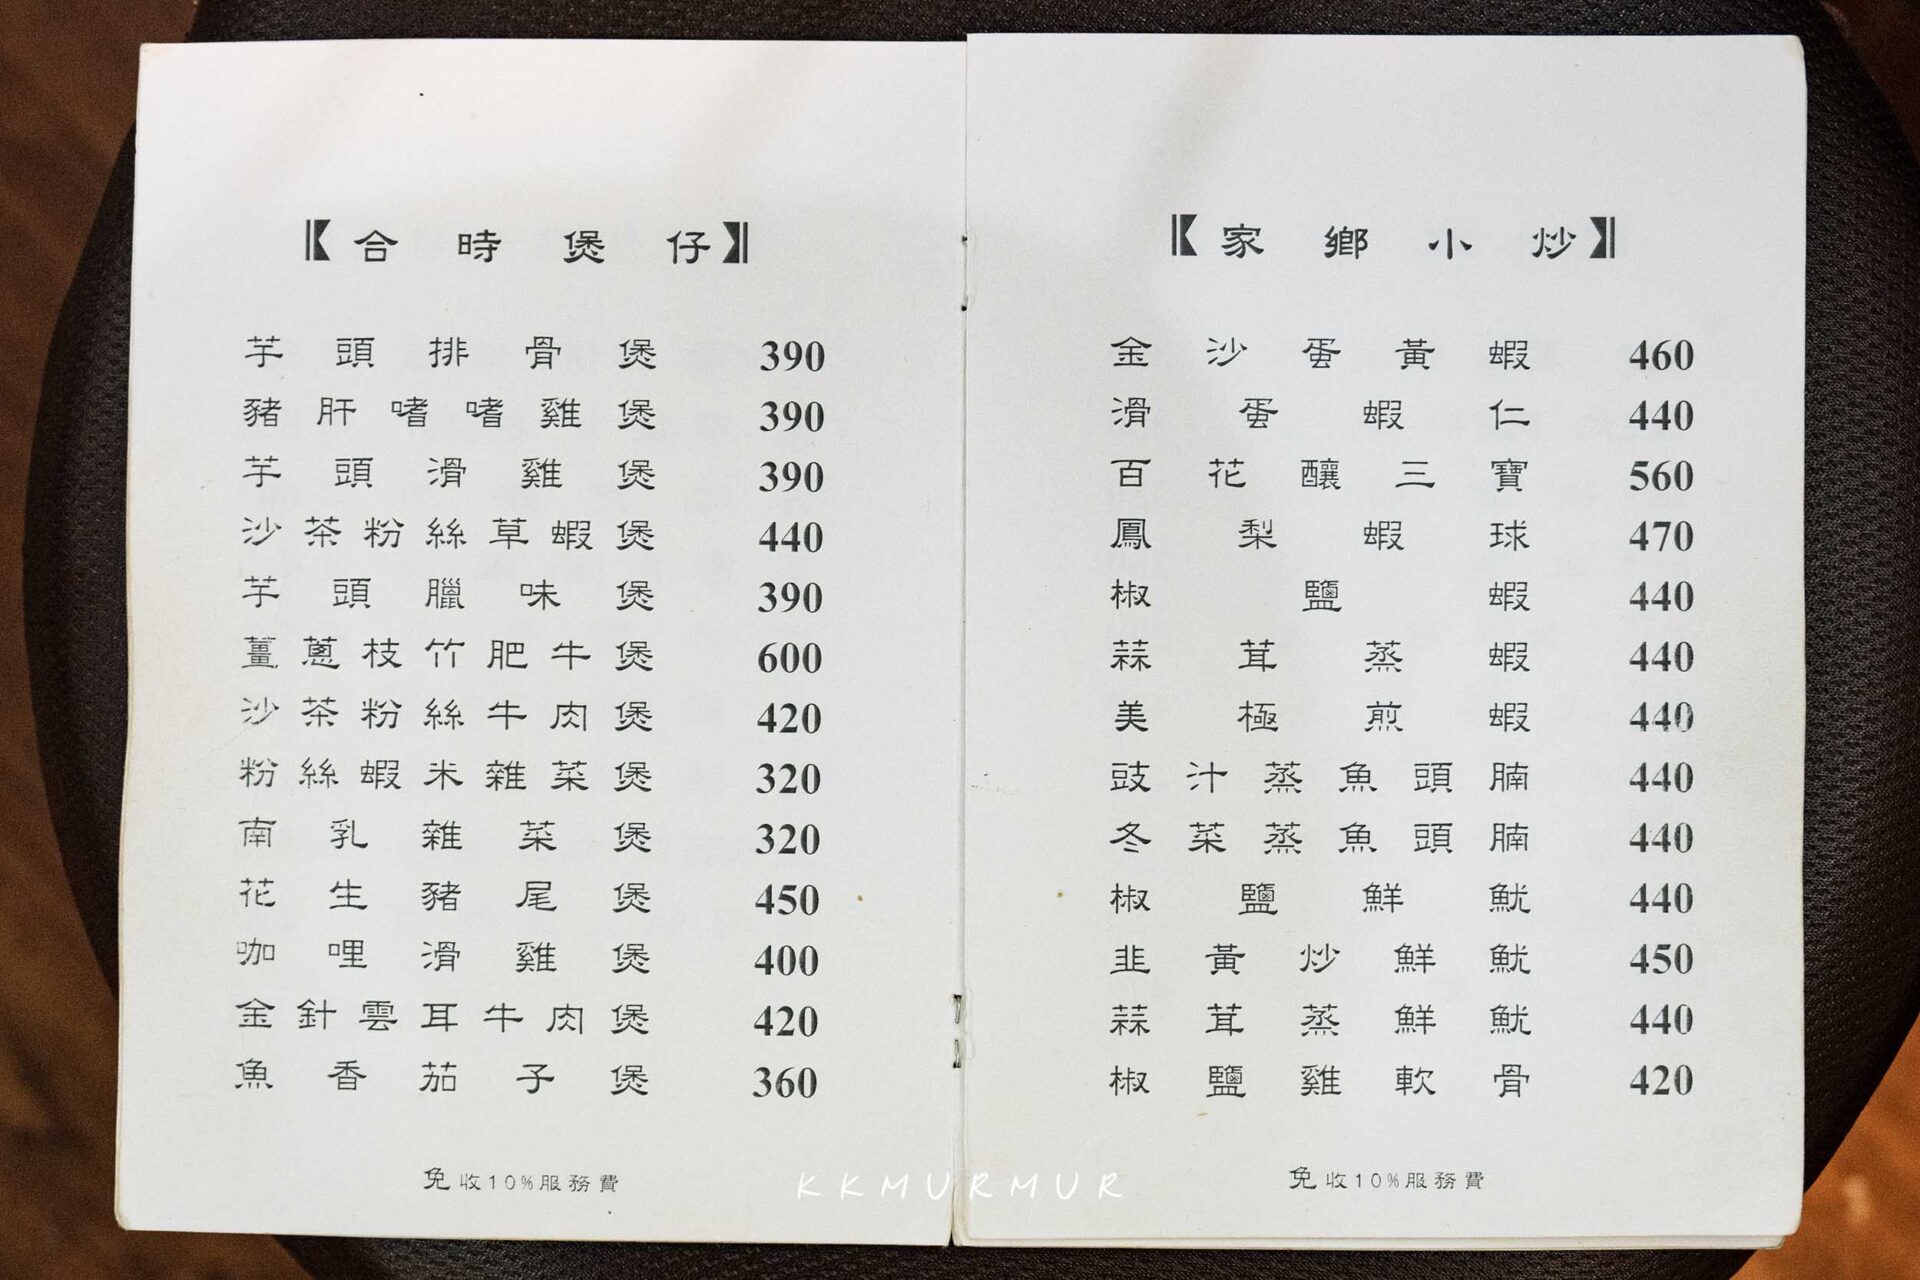 【合時煲仔】
芋頭排骨煲 390
豬肝嗜嗜雞煲 390
芋頭滑雞煲 390
沙茶粉絲草蝦煲 440
芋頭臘味煲 390
薑蔥枝竹肥牛煲 600
沙茶粉絲牛肉煲 420
粉絲蝦米雜菜煲 320
南乳雜菜煲 320
花生豬尾煲 450
咖哩滑雞煲 400
金針雲耳牛肉煲 420
魚香茄子煲 360
免收10%服務費
【家鄉小炒】
金沙蛋黃蝦 460
滑蛋蝦仁 440
百花釀三寶 560
鳳梨蝦球 470
椒鹽蝦 440
蒜茸蒸蝦 440
美極煎蝦 440
豉汁蒸魚頭腩 440
冬菜蒸魚頭腩 440
椒鹽鮮魷 440
韭黃炒鮮魷 450
蒜茸蒸鮮魷 440
椒鹽雞軟骨 420
免收10%服務費
KKMURMUR